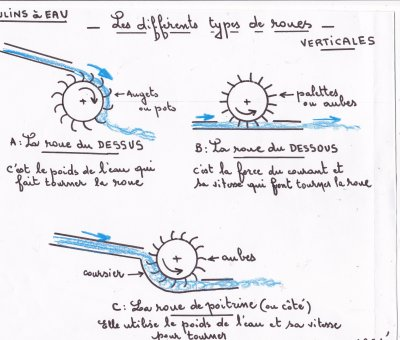 ULINS à EAU
— Les différents types de roues —
VERTICALES
Augets
ou pots
palettes
ou aubes
A: La roue du DESSUS
C'est le poids de l'eau qui
fait tourner la roue
B: La roue du DESSOUS
c'est la force du courant et
sa vitesse qui font tourner la roue
coursier
aubes
C: La roue de poitrine (ou côté)
Elle utilise le poids de l'eau et sa vitesse
pour tourner